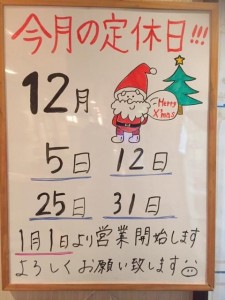 今月の定休日!!!
12月
Merry
X'mas
5日 12日
25日 31日
1月1日より営業開始します
よろしくお願い致します